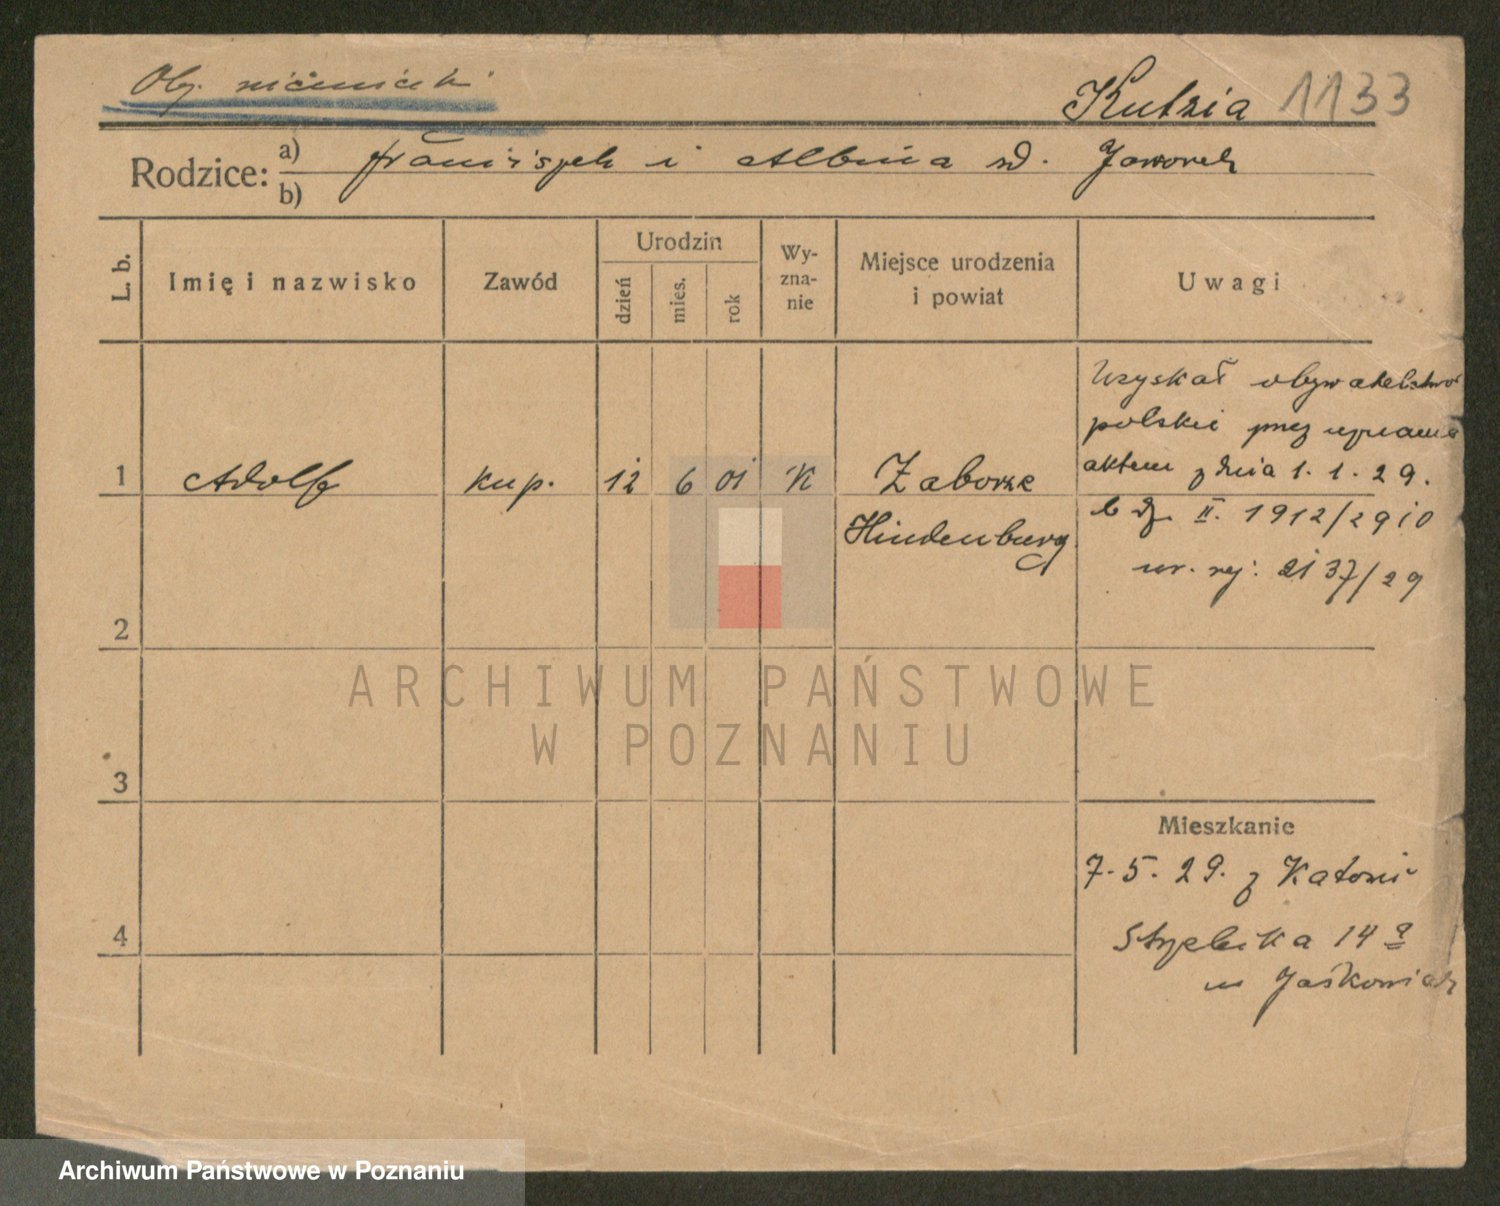 Ob. niemiecki
Kutzia 1133
Rodzice: a) Franciszek i Albina zd. Jaworek
b)
L. b.
Imię i nazwisko
Zawód
Urodzin
dzień
mies.
rok
Wy-
zna-
nie
Miejsce urodzenia
i powiat
Uwagi
1 Adolf kup. 12 6 01 K Zaborze
Hindenburg
Uzyskał obywatelstwo
polskie przez
aktem z dnia 1.1.29.
L dz. II. 1912/29
nr. rej. 2137/29
2
3
4
Mieszkanie
7.5.29. z Katowic
Strzelecka 14a
u Jaśkowiak
ARCHIWUM PAŃSTWOWE
W POZNANIU
Archiwum Państwowe w Poznaniu